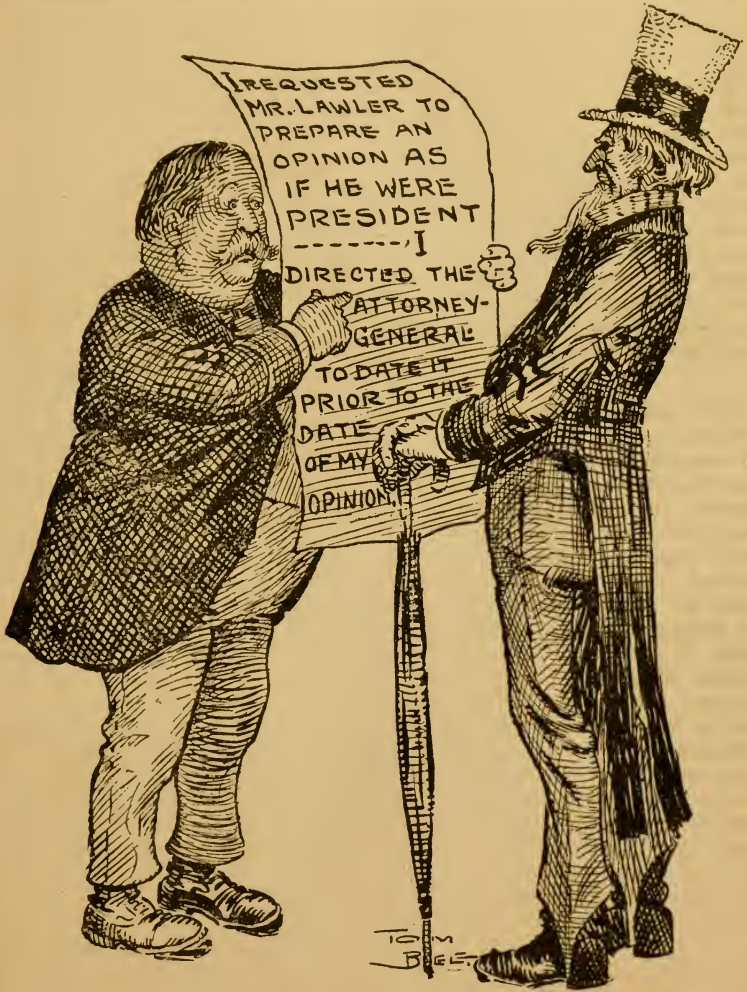 I REQUESTED
MR. LAWLER TO
PREPARE AN
OPINION AS
IF HE WERE
PRESIDENT
-------, I
DIRECTED THE
ATTORNEY-
GENERAL
TO DATE IT
PRIOR TO THE
DATE
OF MY
OPINION.
TOM